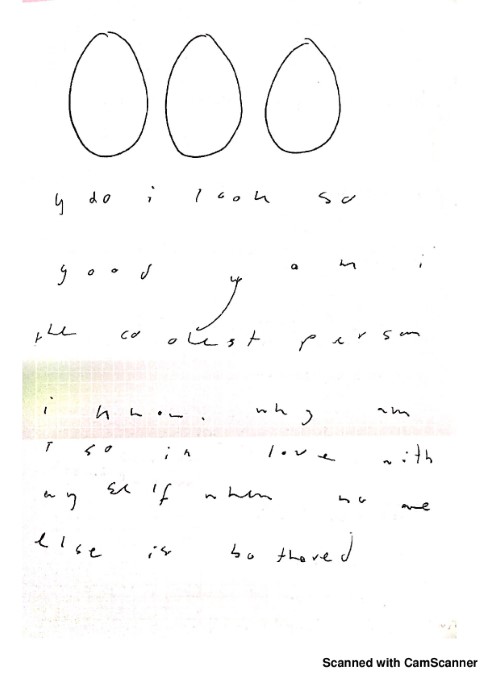 y do i look so
good y am i
the coolest person
i know. why am
I so in love with
myself when no one
else is bothered
Scanned with CamScanner